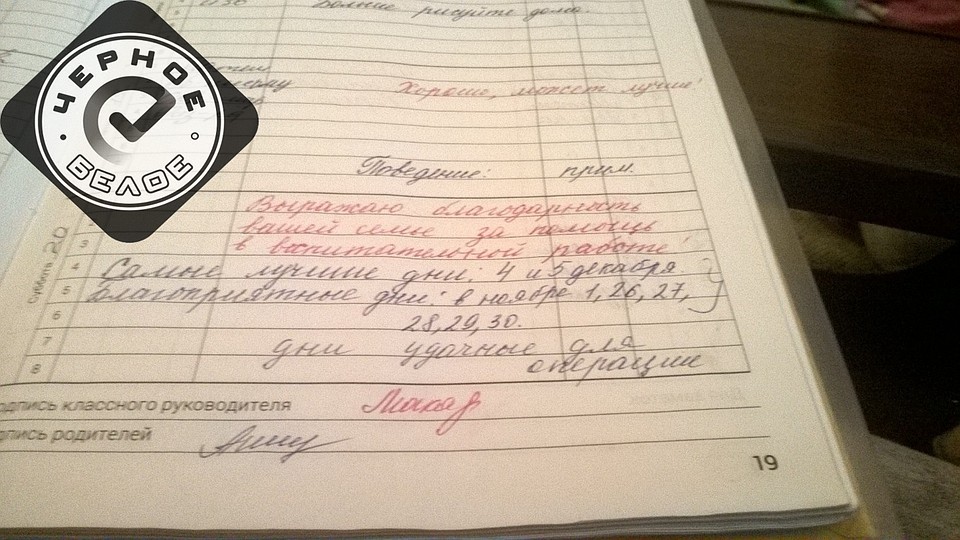 больше рисуйте долго.
ЧЕРНОЕ
БЕЛОЕ
Хорошо, может лучше!
Поведение: прим.
Выражаю благодарность
вашей семье за помощь
в воспитательной работе!
суббота 20
3
4 Самые лучшие дни: 4 и 5 декабря.
5 Благоприятные дни: в ноябре 1, 26, 27,
6 28, 29, 30.
7 дни удачные для
8 операции
одпись классного руководителя
пись родителей
19